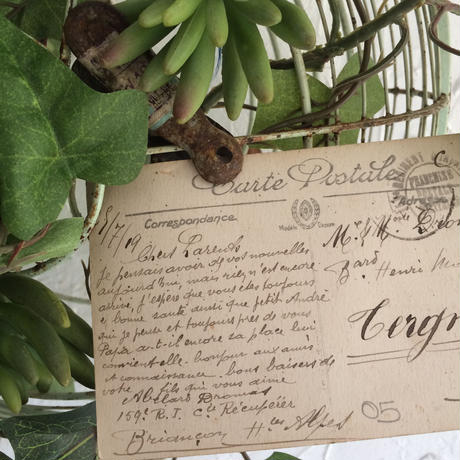 Carte Postale
Correspondance
5/7/19
Chers Parents
Je pensais avoir de vos nouvelles
aujourd'hui, mais rien n'est encore
arrivé, j'espère que vous êtes toujours
en bonne santé ainsi que petit André
à qui je pense et toujours près de vous
Papa a-t-il encore sa place lui
convient-elle. bonjour aux amis
et connaissance. bons baisers de
votre fils qui vous aime
Abélard
159e R.I. Cie Récupérér
Briançon Htes Alpes
05
Mr & M
Bard Henri
Tergn